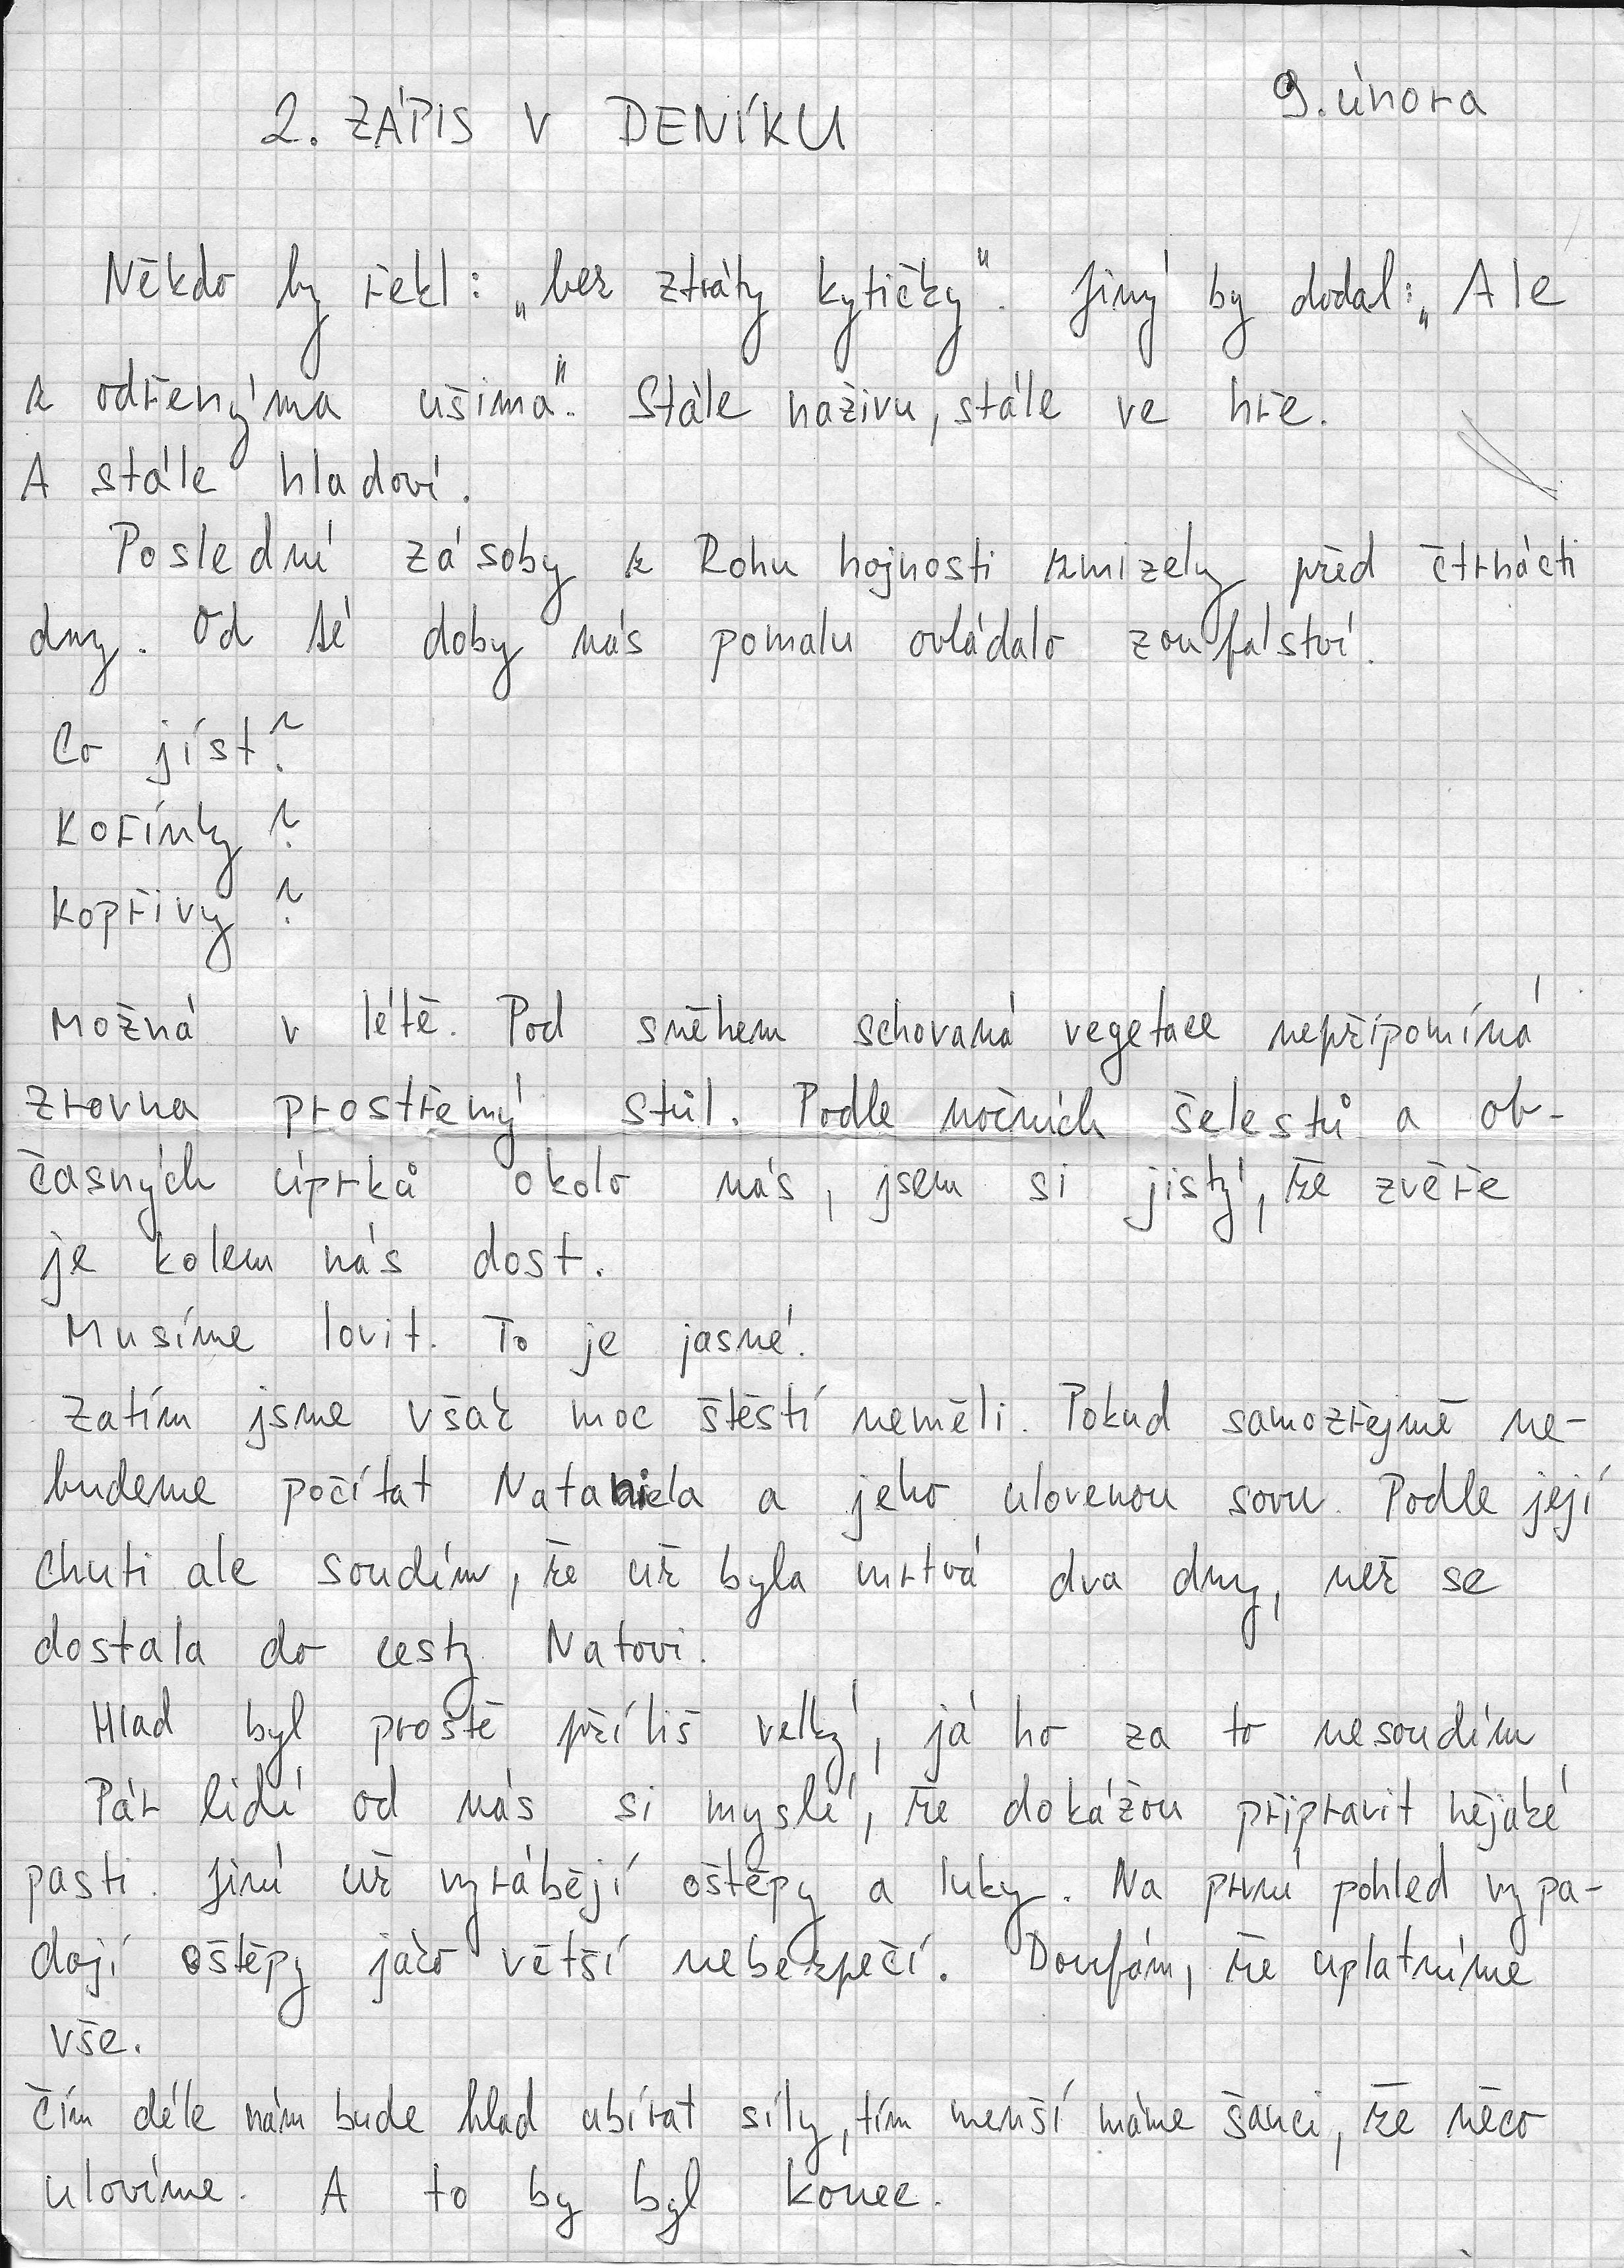 9. února
2. ZÁPIS V DENÍKU
Někdo by řekl: „bez ztráty kytičky". Jiný by dodal: „Ale
z odřenýma ušima". Stále naživu, stále ve hře.
A stále hladoví.
Poslední zásoby z Rohu hojnosti zmizely před čtrnácti
dny. Od té doby nás pomalu ovládalo zoufalství.
Co jíst?
Kořínky?
Kopřivy?
Možná v létě. Pod sněhem schovaná vegetace nepřipomíná
zrovna prostřený stůl. Podle nočních šelestů a ob-
časných úprků okolo nás, jsem si jistý, že zvěře
je kolem nás dost.
Musíme lovit. To je jasné.
Zatím jsme však moc štěstí neměli. Pokud samozřejmě ne-
budeme počítat Nataniela a jeho ulovenou sovu. Podle její
chuti ale soudím, že už byla mrtvá dva dny, než se
dostala do cesty Natovi.
Hlad byl prostě příliš velký, já ho za to nesoudím
Pár lidí od nás si myslí, že dokážou připravit nějaké
pasti. Jiní už vyrábějí oštěpy a luky. Na první pohled vypa-
dají oštěpy jako větší nebezpečí. Doufám, že uplatníme
vše.
Čím déle nám bude hlad ubírat síly, tím menší máme šanci, že něco
ulovíme. A to by byl konec.